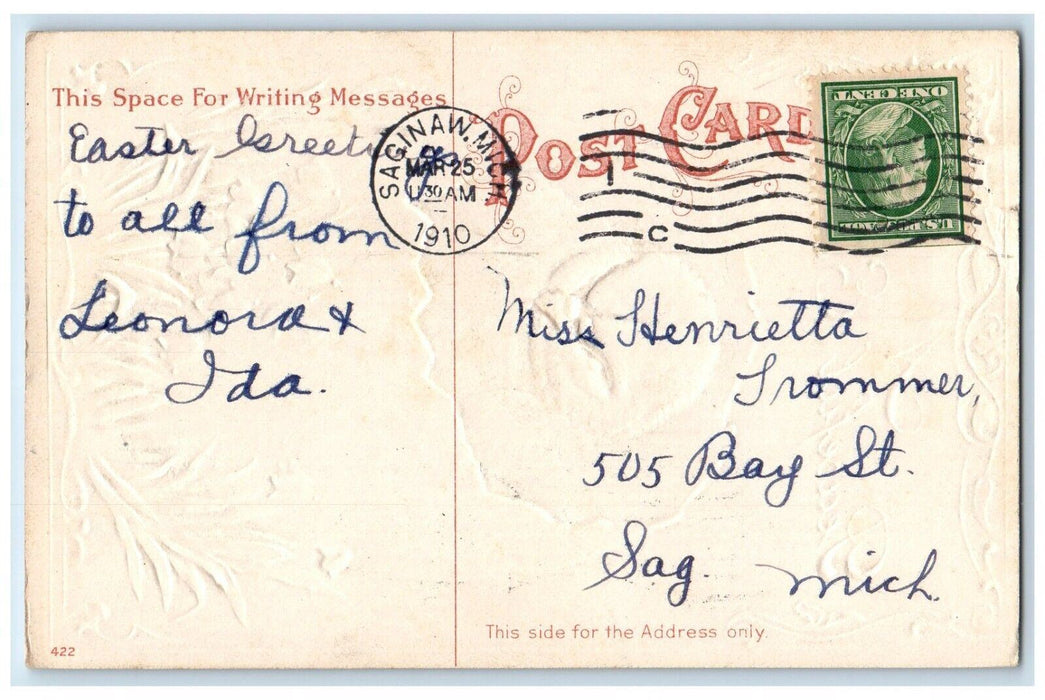 This Space For Writing Messages
Easter Greetings
to all from
Leonora &
Ida.
SAGINAW, MICH
MAR 25
1130 AM
1910
1
C
POST CARD
ONE CENT
Miss Henrietta
Trommer,
505 Bay St.
Sag. Mich.
This side for the Address only.
422